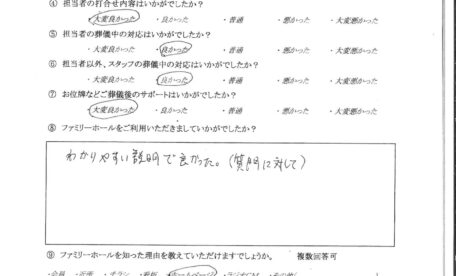 ④ 担当者の打合せ内容はいかがでしたか？
・大変良かった ・良かった ・普通 ・悪かった ・大変悪かった
⑤ 担当者の葬儀中の対応はいかがでしたか？
・大変良かった ・良かった ・普通 ・悪かった ・大変悪かった
⑥ 担当者以外、スタッフの葬儀中の対応はいかがでしたか？
・大変良かった ・良かった ・普通 ・悪かった ・大変悪かった
⑦ お位牌などご葬儀後のサポートはいかがでしたか？
・大変良かった ・良かった ・普通 ・悪かった ・大変悪かった
⑧ ファミリーホールをご利用いただきましていかがでしたか？
わかりやすい説明で良かった。(質問に対して)
⑨ ファミリーホールを知った理由を教えていただけますでしょうか。 複数回答可
・会員 ・近所 ・チラシ ・看板 ・ホームページ ・ラジオCM ・その他(